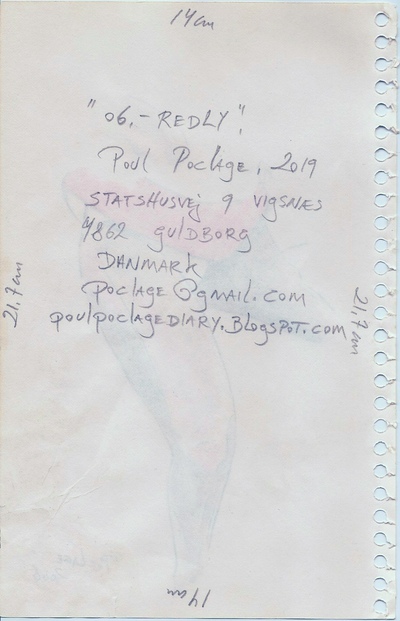 14 cm
"06.- REDLY".
Poul Poclage, 2019
STATSHUSVej 9 VIGSNÆS
4862 GULDBORG
DANMARK
poclage@gmail.com
poulpoclageDIARY.BLOGSPOT.com
21,7 cm
21,7 cm
14 cm